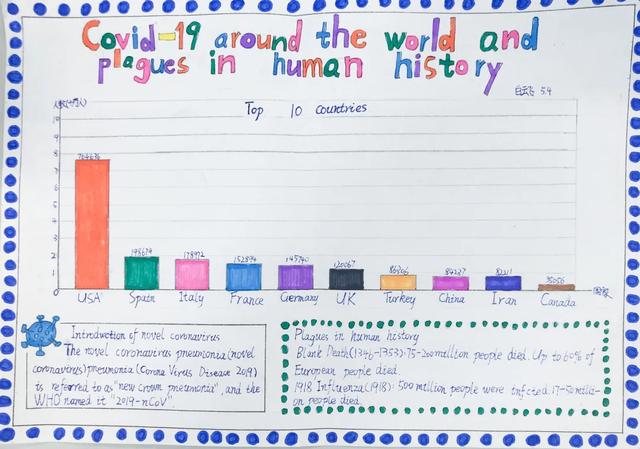 Covid-19 around the world and
plagues in human history
Top 10 Countries
10
9
8
7
6
5
4
3
2
1
0
198674
178972
152894
145740
120067
86306
84227
82211
35056
USA
Spain
Italy
France
Germany
UK
Turkey
China
Iran
Canada
国家
Introduction of novel coronavirus
The novel coronavirus pneumonia(novel
coronavirus)pneumonia(Corona Virus Disease 2019)
is referred to as "new crown pneumonia", and the
WHO named it "2019-nCoV".
Plagues in human history
Blank Death(1346-1353):75-200 million people died. Up to 60% of
European people died.
1918 Influenza(1918): 500 million people were infcted. 17-50 milli-
on people died.